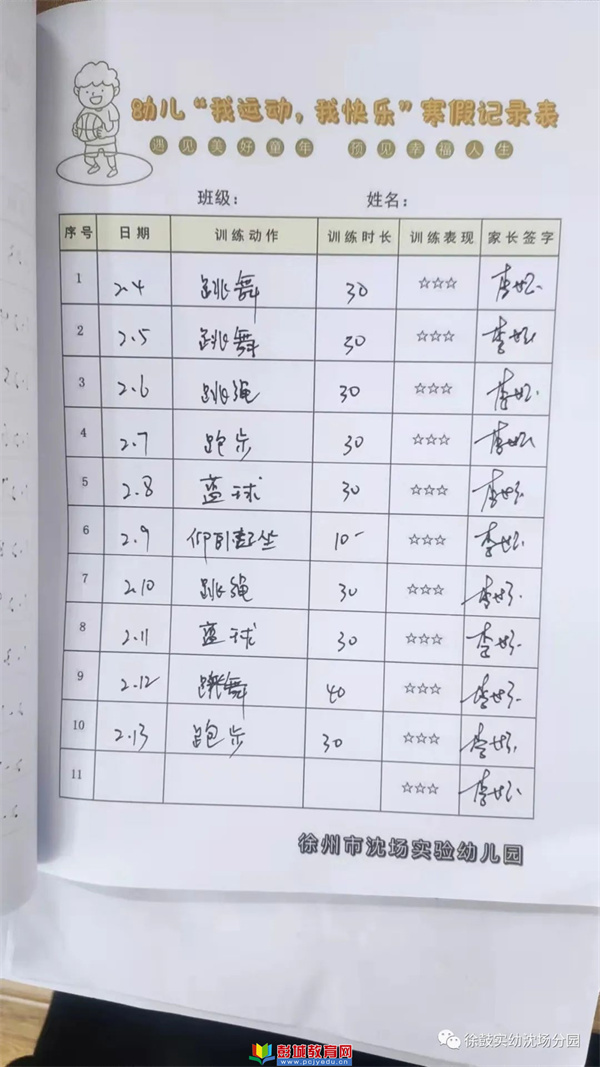 幼儿“我运动，我快乐”寒假记录表
遇见美好童年 预见幸福人生
班级： 姓名：
序号 日期 训练动作 训练时长 训练表现 家长签字
1 2.4 跳舞 30 ☆☆☆
2 2.5 跳舞 30 ☆☆☆
3 2.6 跳绳 30 ☆☆☆
4 2.7 跑步 30 ☆☆☆
5 2.8 蓝球 30 ☆☆☆
6 2.9 仰卧起坐 10 ☆☆☆
7 2.10 跳绳 30 ☆☆☆
8 2.11 蓝球 30 ☆☆☆
9 2.12 跳舞 40 ☆☆☆
10 2.13 跑步 30 ☆☆☆
11 ☆☆☆
徐州市沈场实验幼儿园
徐鼓实幼沈场分园
彭城教育网
www.pcjyedu.cn